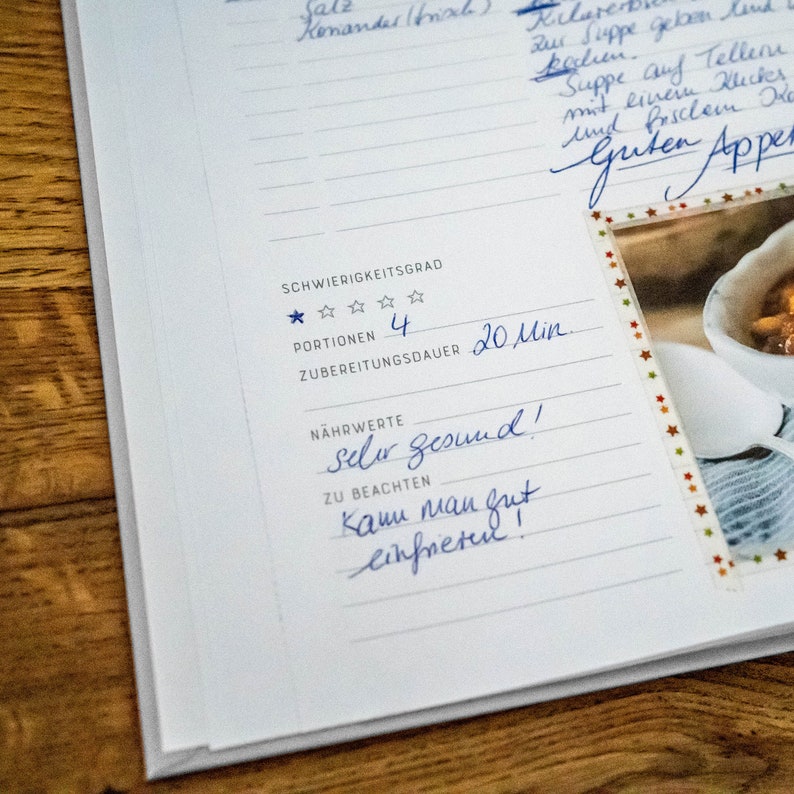 Salz
Koriander (frisch)
Kichererbsen
zur Suppe geben und
kochen.
Suppe auf Tellern
mit einem Klecks
und frischem Ko
Guten Appet
SCHWIERIGKEITSGRAD
PORTIONEN 4
ZUBEREITUNGSDAUER 20 Min.
NÄHRWERTE
sehr gesund!
ZU BEACHTEN
Kann man gut
einfrieren!